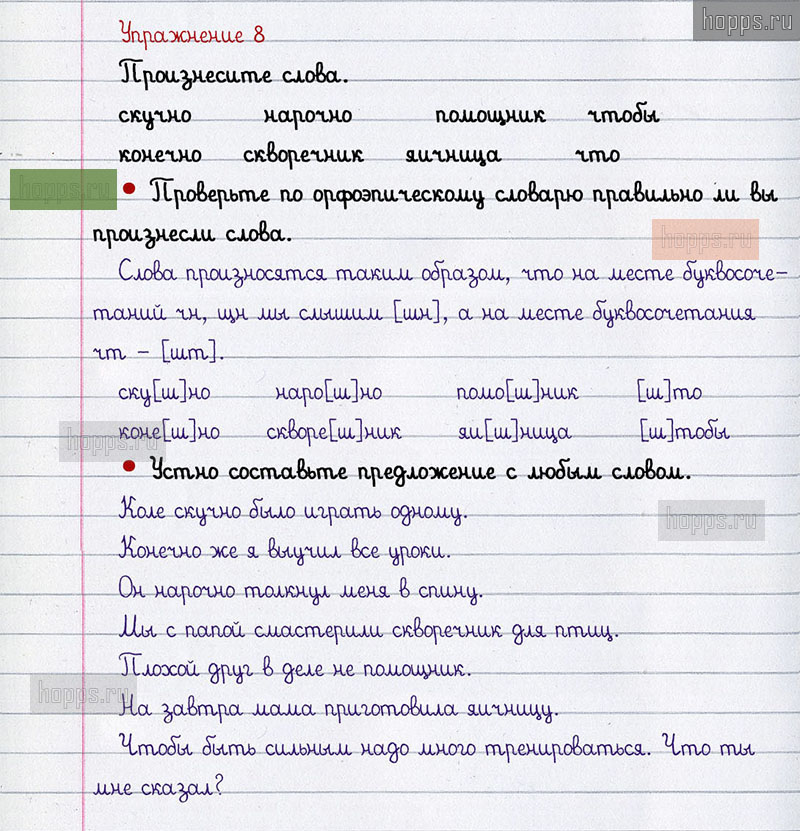 hopps.ru
Упражнение 8
Произнесите слова.
скучно нарочно помощник чтобы
конечно скворечник яичница что
hopps.ru
• Проверьте по орфоэпическому словарю правильно ли вы
произнесли слова.
hopps.ru
Слова произносятся таким образом, что на месте буквосоче-
таний чн, щн мы слышим [шн], а на месте буквосочетания
чт – [шт].
ску[ш]но наро[ш]но помо[ш]ник [ш]то
коне[ш]но скворе[ш]ник яи[ш]ница [ш]тобы
hopps.ru
• Устно составьте предложение с любым словом.
Коле скучно было играть одному.
hopps.ru
Конечно же я выучил все уроки.
Он нарочно толкнул меня в спину.
Мы с папой смастерили скворечник для птиц.
Плохой друг в деле не помощник.
hopps.ru
На завтра мама приготовила яичницу.
Чтобы быть сильным надо много тренироваться. Что ты
мне сказал?